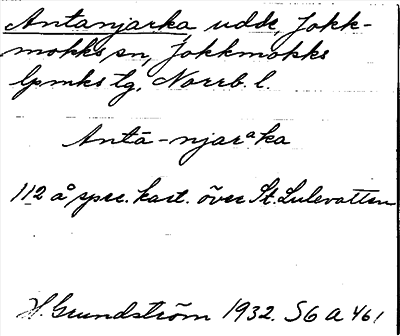 Antanjarka udde, Jokk-
mokks sn, Jokkmokks
lpmks tg, Norrb. l.
Antā-njarᵃka
112 å spec. kart. över St. Lulevatten
H. Grundström 1932. S6 A 461